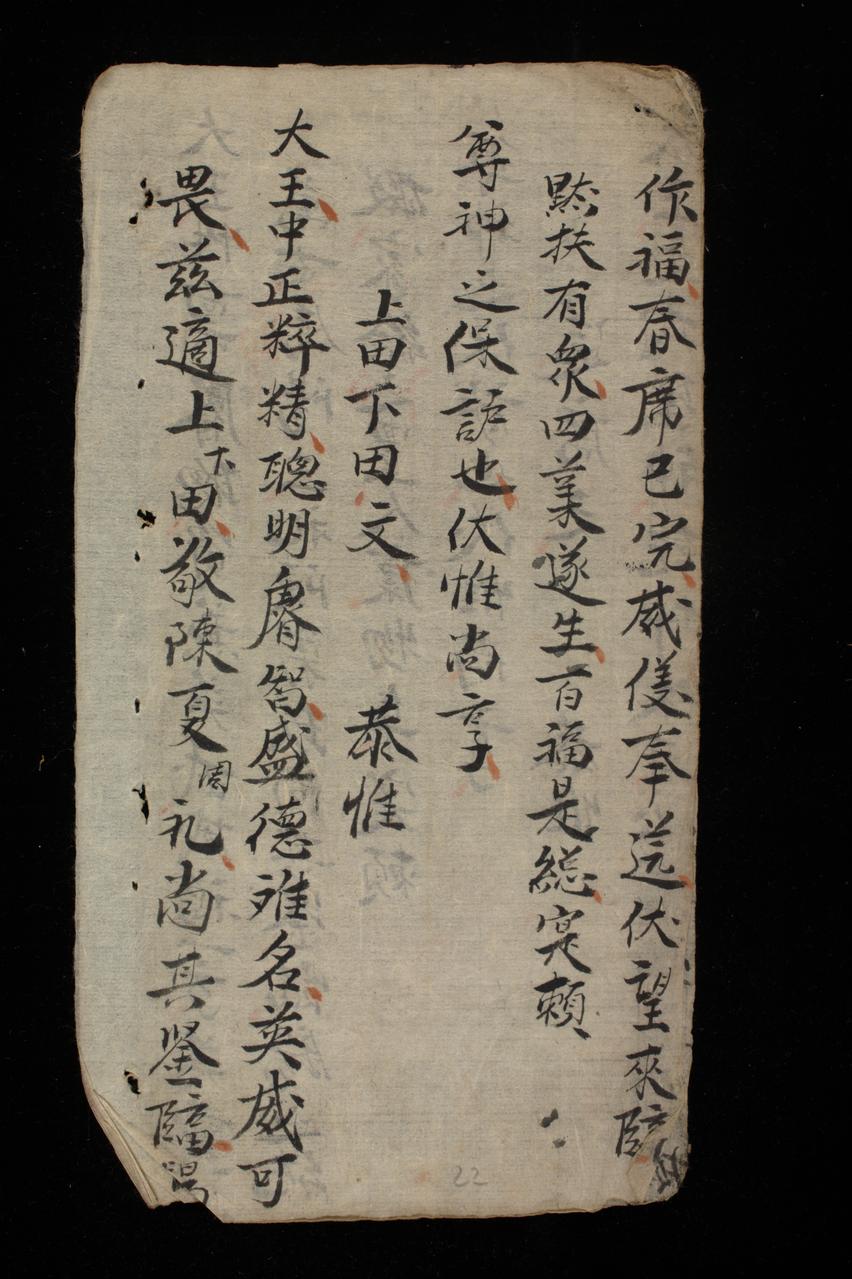 作福春席已完威儀奉送伏望來臨
黙扶有衆四美遂生百福是総寔頼
尊神之保詬也伏惟尚享
上田下田文　恭惟
大王中正粹精聰明睿智盛德难名英威可
畏兹適上下田敬陳夏周礼尚其鉴臨
22